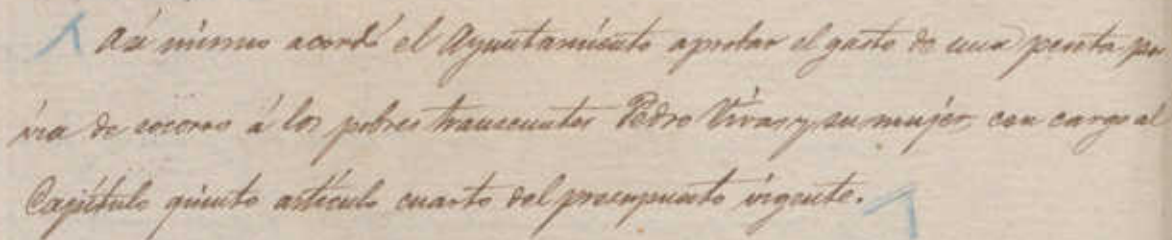 Asi mismo acordó el Ayuntamiento aprobar el gasto de una peseta por
via de socorro á los pobres transeuntes Pedro Vivas y su mujer, con cargo al
Capítulo quinto artículo cuarto del presupuesto vigente.